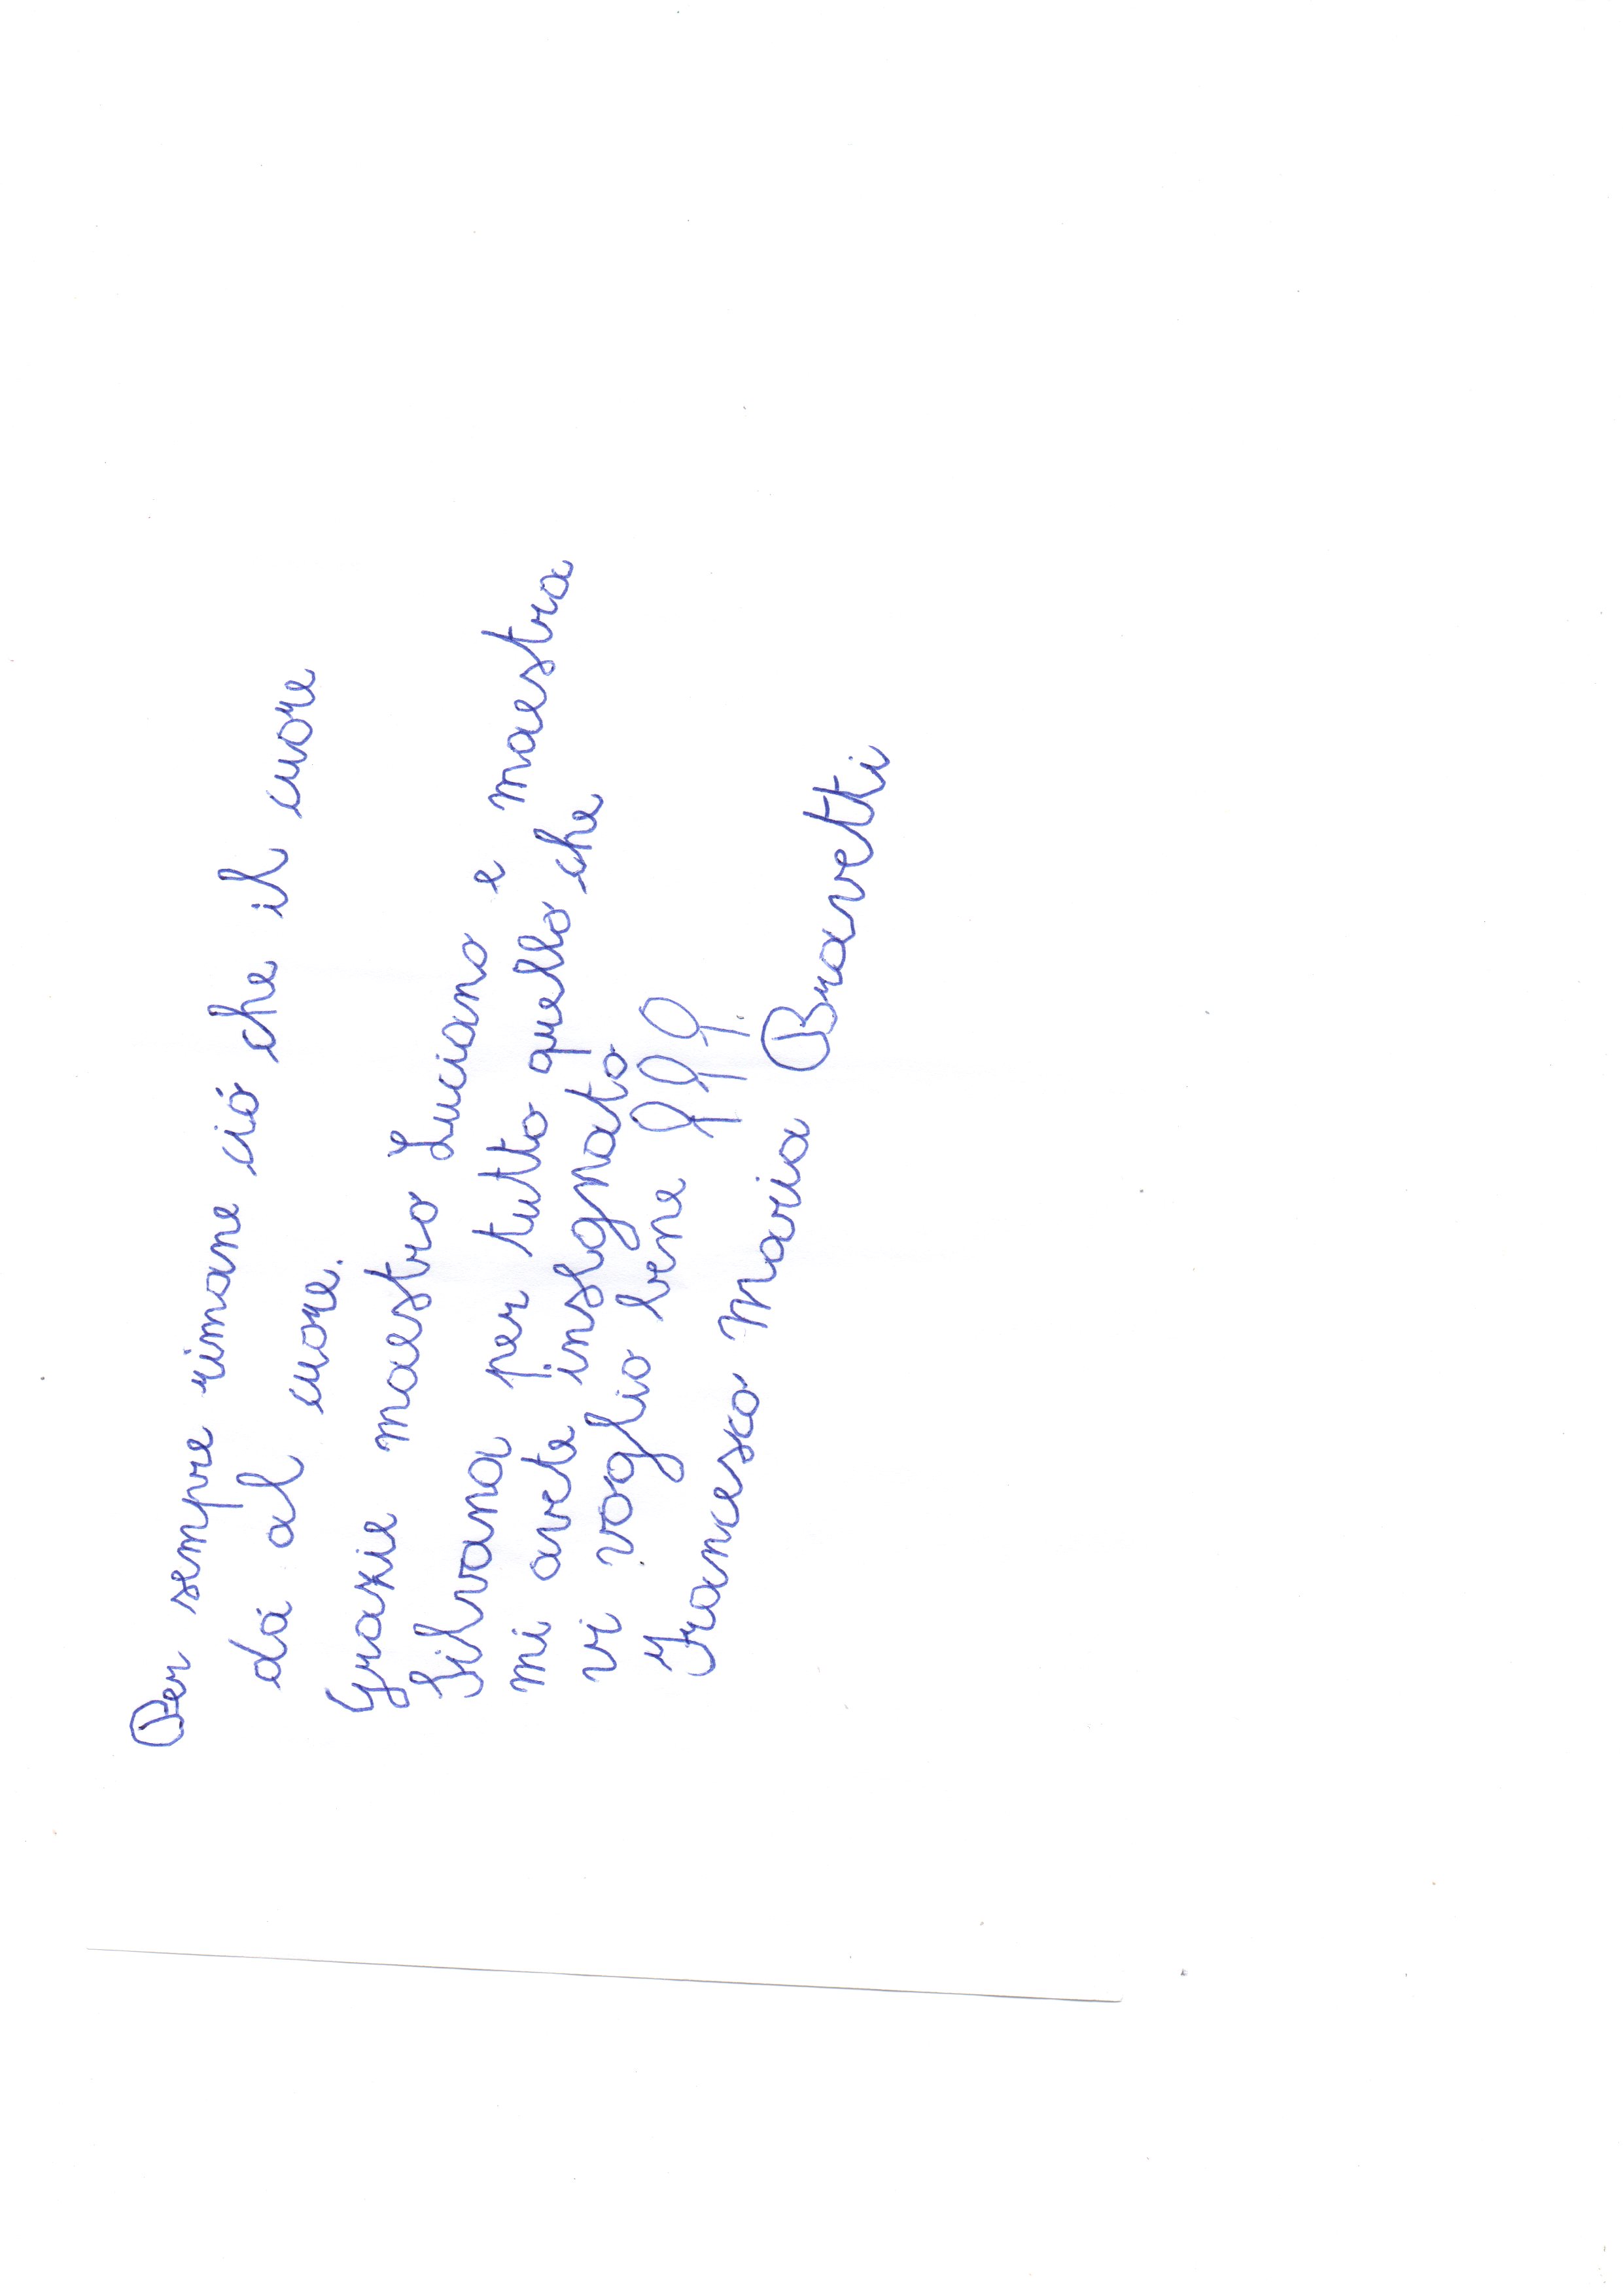 Per sempre rimane ciò che il cuore
dà al cuore.
Grazie maestro Luciano e maestra
Silvana per tutto quello che
mi avete insegnato
vi voglio bene
Francesco Maria Bravetti